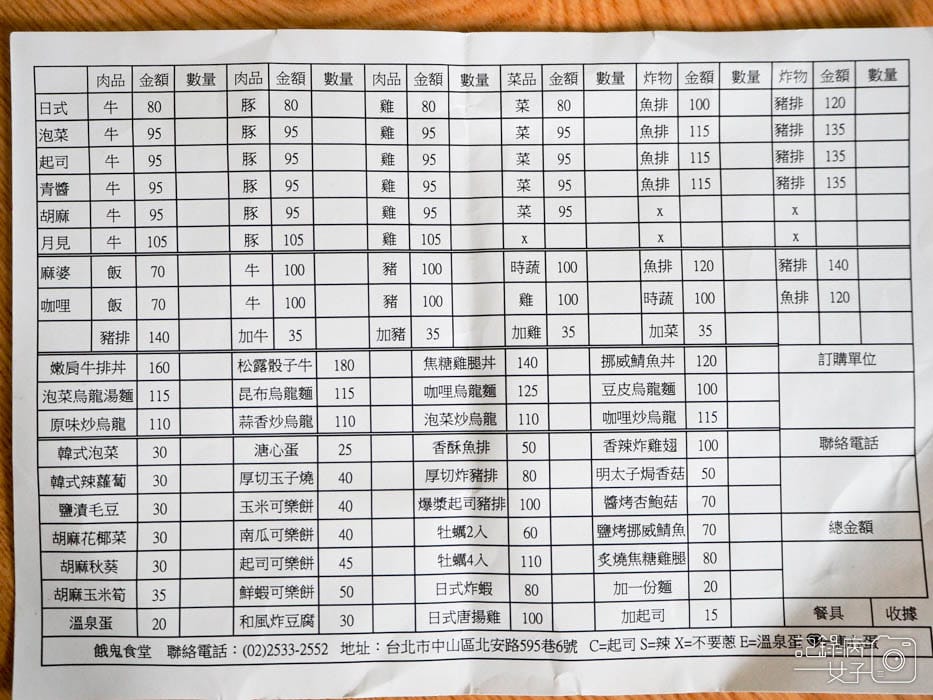 肉品 金額 數量 肉品 金額 數量 肉品 金額 數量 菜品 金額 數量 炸物 金額 數量 炸物 金額 數量
日式 牛 80 豚 80 雞 80 菜 80 魚排 100 豬排 120
泡菜 牛 95 豚 95 雞 95 菜 95 魚排 115 豬排 135
起司 牛 95 豚 95 雞 95 菜 95 魚排 115 豬排 135
青醬 牛 95 豚 95 雞 95 菜 95 魚排 115 豬排 135
胡麻 牛 95 豚 95 雞 95 菜 95 x x
月見 牛 105 豚 105 雞 105 x x x
麻婆 飯 70 牛 100 豬 100 時蔬 100 魚排 120 豬排 140
咖哩 飯 70 牛 100 豬 100 雞 100 時蔬 100 魚排 120
豬排 140 加牛 35 加豬 35 加雞 35 加菜 35
嫩肩牛排丼 160 松露骰子牛 180 焦糖雞腿丼 140 挪威鯖魚丼 120 訂購單位
泡菜烏龍湯麵 115 昆布烏龍麵 115 咖哩烏龍麵 125 豆皮烏龍麵 100
原味炒烏龍 110 蒜香炒烏龍 110 泡菜炒烏龍 110 咖哩炒烏龍 115
韓式泡菜 30 溏心蛋 25 香酥魚排 50 香辣炸雞翅 100 聯絡電話
韓式辣蘿蔔 30 厚切玉子燒 40 厚切炸豬排 80 明太子焗香菇 50
鹽漬毛豆 30 玉米可樂餅 40 爆漿起司豬排 100 醬烤杏鮑菇 70
胡麻花椰菜 30 南瓜可樂餅 40 牡蠣2入 60 鹽烤挪威鯖魚 70 總金額
胡麻秋葵 30 起司可樂餅 45 牡蠣4入 110 炙燒焦糖雞腿 80
胡麻玉米筍 35 鮮蝦可樂餅 50 日式炸蝦 80 加一份麵 20
溫泉蛋 20 和風炸豆腐 30 日式唐揚雞 100 加起司 15 餐具 收據
餓鬼食堂 聯絡電話：(02)2533-2552 地址：台北市中山區北安路595巷6號 C=起司 S=辣 X=不要蔥 E=溫泉蛋 蛋
女子